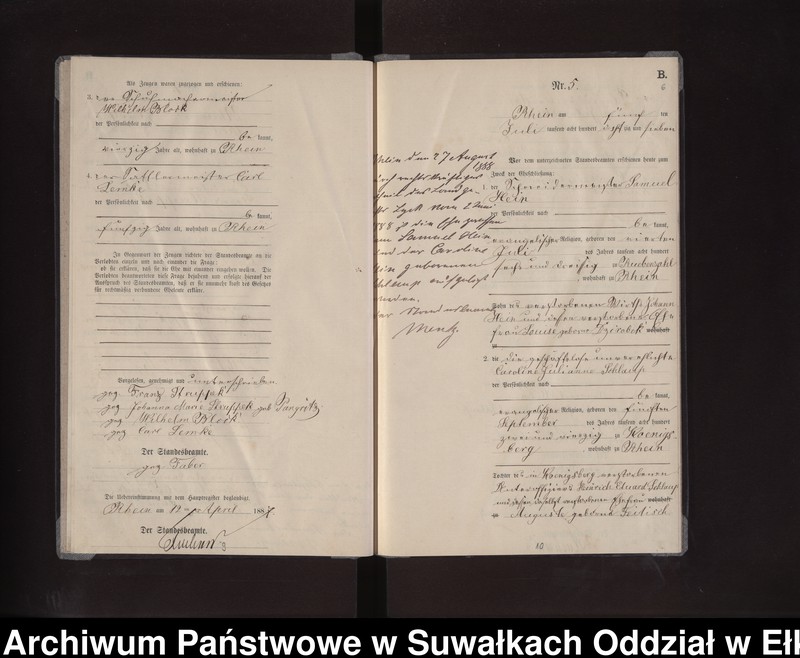 Als Zeugen waren zugezogen und erschienen:
3. der Schuhmachermeister
Wilhelm Block
der Persönlichkeit nach
be kannt,
vierzig Jahre alt, wohnhaft zu Rhein
4. der Sattlermeister Carl
Lemke
der Persönlichkeit nach
be kannt,
fünfzig Jahre alt, wohnhaft zu Rhein
In Gegenwart der Zeugen richtete der Standesbeamte an die
Verlobten einzeln und nach einander die Frage:
ob sie erklären, daß sie die Ehe mit einander eingehen wollen. Die
Verlobten beantworteten diese Frage bejahend und erfolgte hierauf der
Ausspruch des Standesbeamten, daß er sie nunmehr kraft des Gesetzes
für rechtmäßig verbundene Eheleute erkläre.
Vorgelesen, genehmigt und unterschrieben
gez Franz
gez Johanna Marie geb
gez Wilhelm Block
gez Carl Lemke
Der Standesbeamte.
gez Faber
Die Uebereinstimmung mit dem Hauptregister beglaubigt.
Rhein am April 188
Der Standesbeamte.
B.
6
Nr. 5.
Rhein am fünf ten
Juli tausend acht hundert achtzig und sieben
Vor dem unterzeichneten Standesbeamten erschienen heute zum
Zweck der Eheschließung:
1. der Schneidermeister Samuel
Hein
der Persönlichkeit nach
be kannt,
evangelischer Religion, geboren den vierten
Juli des Jahres tausend acht hundert
sechs und dreißig zu
, wohnhaft zu Rhein
Sohn des verstorbenen Wirths Johann
Hein und dessen verstorbenen Ehe
frau Louise geborne wohnhaft
zu
2. die geschäftslose unverehlichte
Caroline Julianne Schlaup
der Persönlichkeit nach
be kannt,
evangelischer Religion, geboren den fünften
September des Jahres tausend acht hundert
zwei und vierzig zu Koenigs
berg, wohnhaft zu Rhein
Tochter des in Koenigsberg verstorbenen
Unteroffiziers Eduard Schlaup
und dessen daselbst verstorbenen Ehefrau wohnhaft
zu Auguste geborne
Rhein den 27 August
1888
Durch rechtskräftiges
Lyck vom 2 Juni
1888 ist die Ehe zwischen
dem Samuel Hein
und der Caroline
Hein geborenen
Schlaup aufgelöst
worden.
Der Standesbeamte
Mentz
10
Archiwum Państwowe w Suwałkach Oddział w Ełk